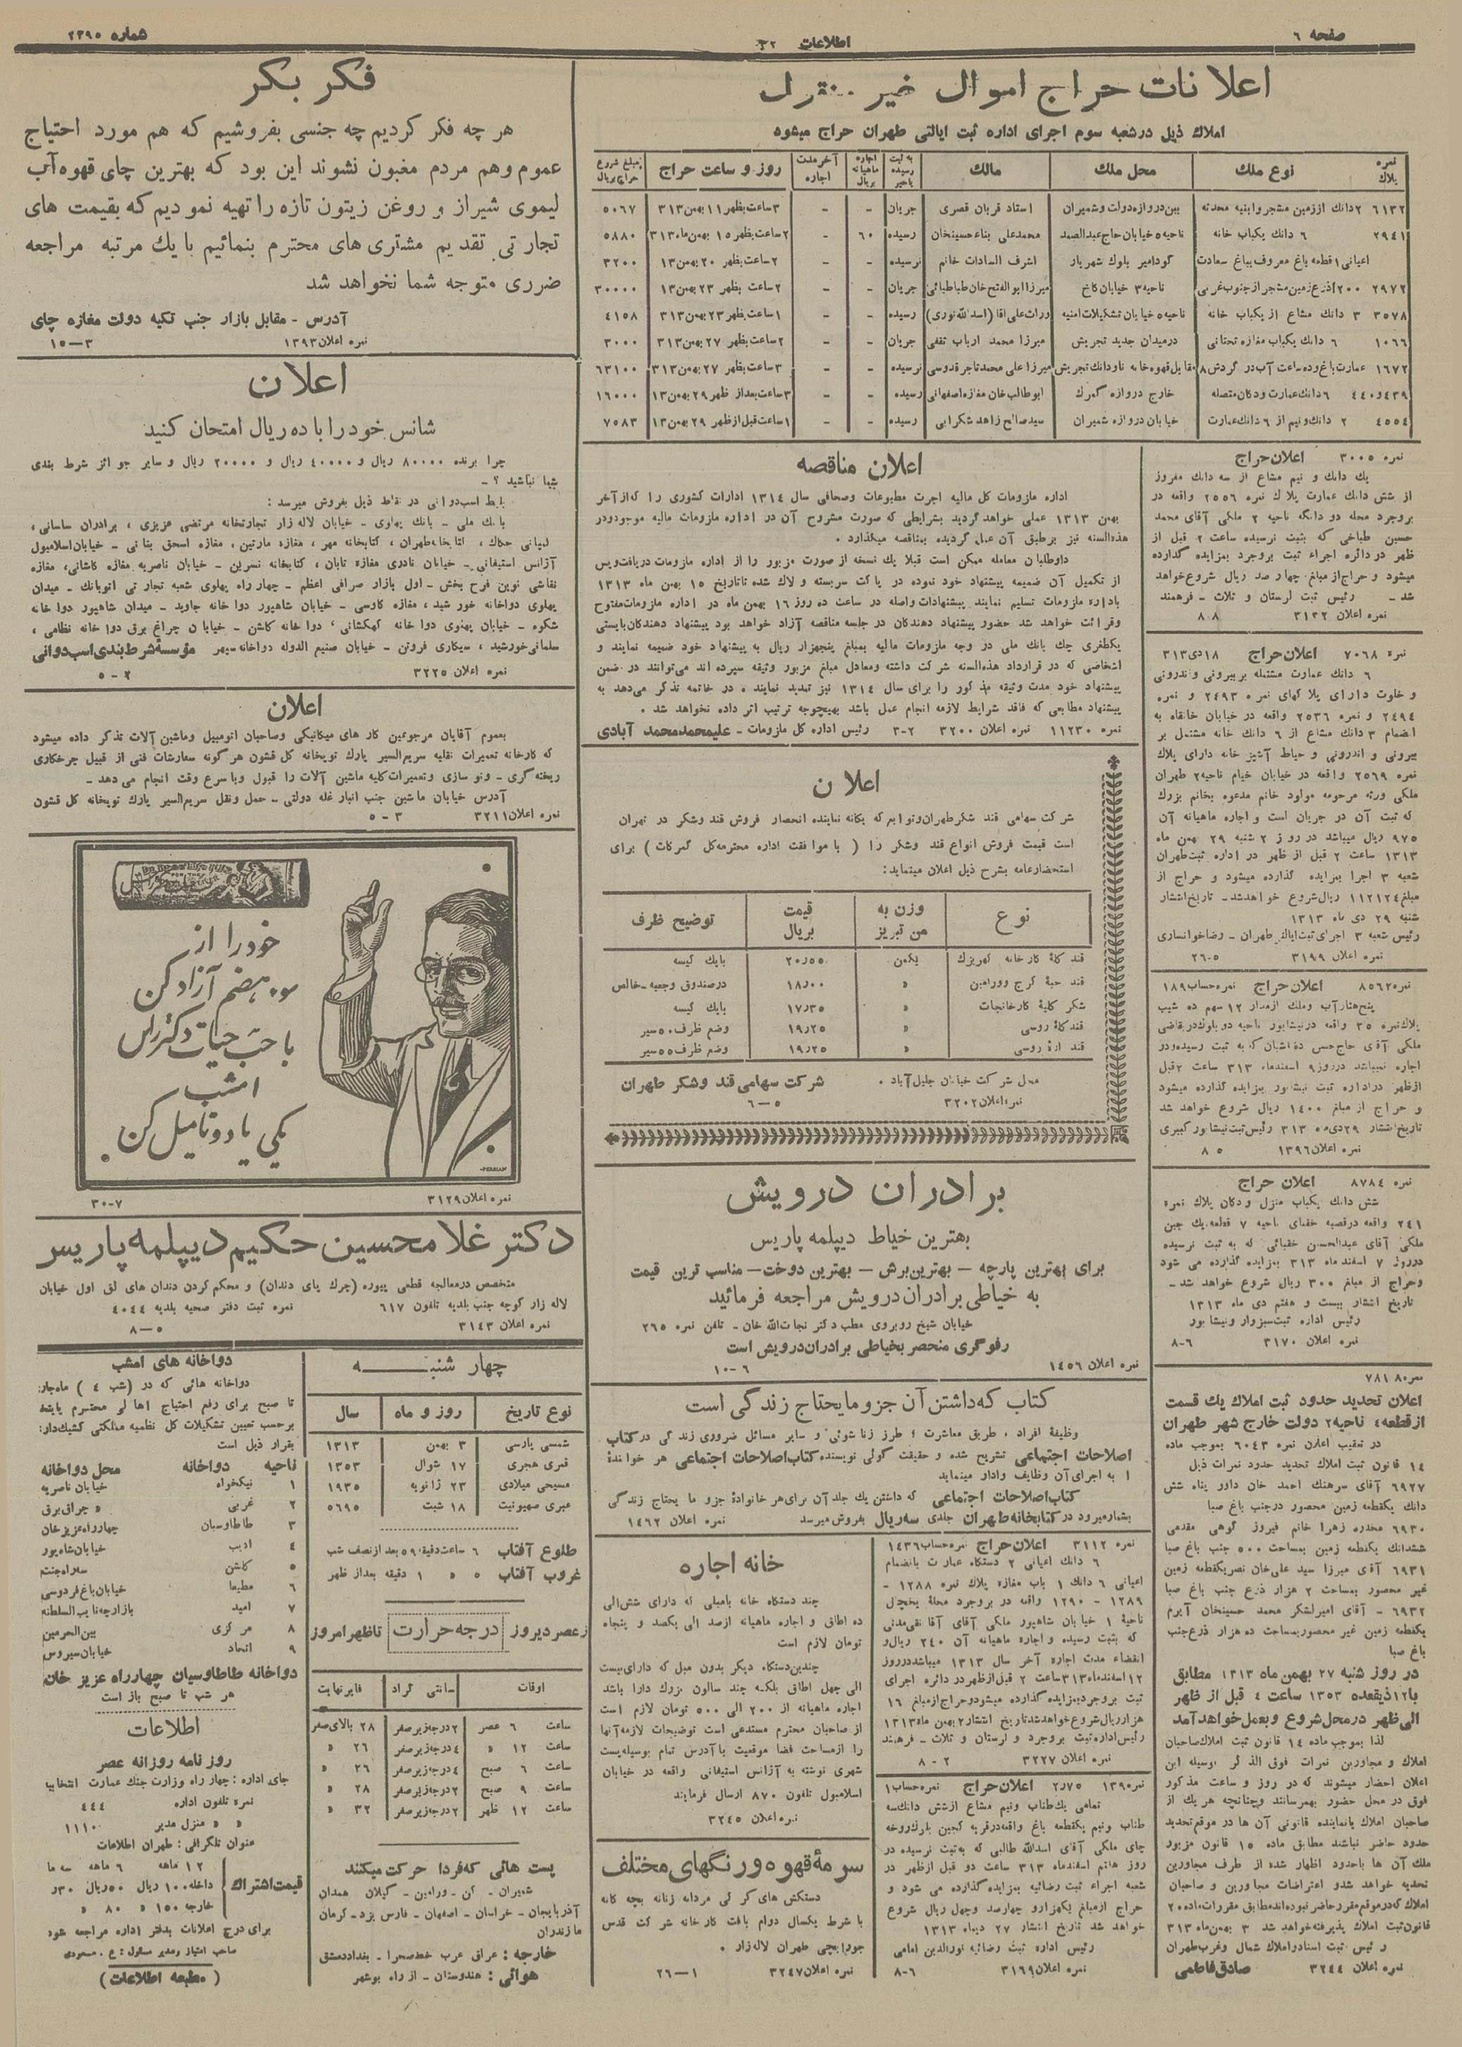 صفحه ۶
اطلاعات
شماره ۲۳۹۵
اعلانات حراج اموال غیر منقول
املاك ذیل در شعبه سوم اجرای اداره ثبت ایالتی طهران حراج میشود
نمره پلاك نوع ملك محل ملك مالك به ثبت رسیده یا خیر اجاره ماهیانه بریال آخر مدت اجاره روز و ساعت حراج مبلغ شروع حراج بریال
۶۱۳۲ ۲ دانك از زمین مشجر و ابنیه محدثه بین دروازه دولت و شمیران استاد قربان قصری جریان - - ۳ ساعت بظهر ۱۱ بهمن ۳۱۳ ۵۰۶۷
۲۹۴۱ ۶ دانك یكباب خانه ناحیه ۵ خیابان حاج عبدالصمد محمد علی بناء حسینخان رسیده ۶۰ - ۲ ساعت بظهر ۱۵ بهمن ماه ۳۱۳ ۵۸۸۰
اعیانی ۱ قطعه باغ معروف بباغ سعادت گودامیر بلوك شهریار اشرف السادات خانم نرسیده - - ۲ ساعت بظهر ۲۰ بهمن ۱۳ ۳۲۰۰
۲۹۷۲ ۲۰۰ ذرع زمین مشجر از جنوب غربی ناحیه ۳ خیابان كاخ میرزا ابوالفتح خان طباطبائی جریان - - ۲ ساعت بظهر ۲۳ بهمن ۱۳ ۳۰۰۰۰
۳۵۷۸ ۳ دانك مشاع از یكباب خانه ناحیه ۵ خیابان تشكیلات امنیه وراث علی اقا (اسدالله نوری) رسیده - - ۱ ساعت بظهر ۲۳ بهمن ۳۱۳ ۴۱۵۸
۱۰۶۶ ۶ دانك یكباب مغازه تحتانی در میدان جدید تجریش میرزا محمد ارباب تقفی جریان - - ۲ ساعت بظهر ۲۷ بهمن ۳۱۳ ۳۰۰۰
۱۶۷۲ عمارت باغ و ده ساعت آب در گردش ۸ مقابل قهوه خانه ناودانك تجریش میرزا علی محمد تاجر قدوسی نرسیده - - ۳ ساعت بظهر ۲۷ بهمن ۳۱۳ ۶۳۱۰۰
۴۳۹ و ۴۴۰ ۶ دانك عمارت و دكان متصله خارج دروازه گمرك ابوطالب خان مغازه اصفهانی رسیده - - ۳ ساعت بعد از ظهر ۲۹ بهمن ۱۳ ۱۶۰۰۰
۴۵۵۴ ۲ دانك و نیم از ۶ دانك عمارت خیابان دروازه شمیران سید صالح زاهد شكرابی رسیده - - ۱ ساعت قبل از ظهر ۲۹ بهمن ۱۳ ۷۵۸۳
نمره ۳۰۰۵ اعلان حراج
یك دانك و نیم مشاع از سه دانك مفروز
از شش دانك عمارت پلاك نمره ۲۵۵۶ واقعه در
بروجرد محله دو دانگه ناحیه ۲ ملكی آقای محمد
حسین طباخی كه بثبت نرسیده ساعت ۲ قبل از
ظهر در دائره اجراء ثبت بروجرد بمزایده گذارده
میشود و حراج از مبلغ چهار صد ریال شروع خواهد
شد - رئیس ثبت لرستان و ثلاث - فرهمند
نمره اعلان ۳۱۳۲ ۸-۸
نمره ۷۰۶۸ اعلان حراج ۱۸ دی ۳۱۳
۶ دانك عمارت مشتمله بر بیرونی و اندرونی
و خلوت دارای پلاكهای نمره ۲۴۹۳ و نمره
۲۴۹۴ و نمره ۲۵۳۶ واقعه در خیابان خانقاه به
انضمام ۳ دانك مشاع از ۶ دانك خانه مشتمل بر
بیرونی و اندرونی و حیاط آشپز خانه دارای پلاك
نمره ۲۵۶۹ واقعه در خیابان خیام ناحیه ۲ طهران
ملكی ورثه مرحومه مولود خانم مدعوه بخانم بزرك
كه ثبت آن در جریان است و اجاره ماهیانه آن
۹۷۵ ریال میباشد در روز ۲ شنبه ۲۹ بهمن ماه
۱۳۱۳ ساعت ۲ قبل از ظهر در اداره ثبت طهران
شعبه ۳ اجرا بمزایده گذارده میشود و حراج از
مبلغ ۱۱۲۱۲۴ ریال شروع خواهد شد - تاریخ انتشار
شنبه ۲۹ دی ماه ۱۳۱۳
رئیس شعبه ۳ اجرای ثبت ایالتی طهران - رضا خوانساری
نمره اعلان ۳۱۹۹ ۲۶-۵
نمره ۸۵۶۲ اعلان حراج نمره حساب ۱۸۹
پنج هنار آب و ملك از مدار ۱۲ سهم ده شیب
پلاك نمره ۳۵ واقعه در نیشابور ناحیه دو بلوك در بقاضی
و حراج از مبلغ ۱۴۰۰ ریال شروع خواهد شد
تاریخ انتشار ۲۹ دی ماه ۳۱۳ رئیس ثبت نیشابور كبیری
نمره اعلان ۱۳۹۶ ۸-۵
نمره ۸۷۸۴ اعلان حراج
شش دانك یكباب منزل و دكان پلاك نمره
ملكی آقای عبدالحسن خفیائی كه به ثبت نرسیده
در روز ۷ اسفند ماه ۳۱۳ بمزایده گذارده می شود
و حراج از مبلغ ۳۰۰ ریال شروع خواهد شد -
تاریخ انتشار بیست و هفتم دی ماه ۱۳۱۳
رئیس اداره ثبت سبزوار و نیشابور
نمره اعلان ۳۱۷۰ ۸-۶
نمره ۷۸۱۸
اعلان تحدید حدود ثبت املاك یك قسمت
از قطعه ۴ ناحیه ۲ دولت خارج شهر طهران
در تعقیب اعلان نمره ۶۰۴۳ بموجب ماده
۱۴ قانون ثبت املاك تحدید حدود نمرات ذیل
۶۹۲۷ آقای سرهنك احمد خان داور پناه شش
دانك یكقطعه زمین محصور در جنب باغ صبا
۶۹۳۰ مخدره زهرا خانم فیروز گوهی مقدمی
ششدانك یكقطعه زمین بمساحت ۵۰۰ جنب باغ صبا
۶۹۳۱ آقای میرزا سید علی خان نصر یكقطعه زمین
غیر محصور بمساحت ۲ هزار ذرع جنب باغ صبا
۶۹۳۲ - آقای امیر لشكر محمد حسینخان آیرم
یكقطعه زمین غیر محصور بمساحت ده هزار ذرع جنب
باغ صبا
در روز شنبه ۲۷ بهمن ماه ۱۳۱۳ مطابق
با ۱۲ ذیقعده ۱۳۵۳ ساعت ۴ قبل از ظهر
الی ظهر در محل شروع و بعمل خواهد آمد
لذا بموجب ماده ۱۴ قانون ثبت املاك صاحبان
املاك و مجاورین نمرات فوق الذكر بوسیله این
اعلان احضار میشوند كه در روز و ساعت مذكور
فوق در محل حضور بهمرسانند و چنانچه هر یك از
صاحبان املاك یا نماینده قانونی آن ها در موقع تحدید
حدود حاضر نباشند مطابق ماده ۱۵ قانون مزبور
ملك آن ها با حدود اظهار شده از طرف مجاورین
تحدید خواهد شد و اعتراضات مجاورین و صاحبان
املاك كه در موقع مقرر حاضر نبوده اند مطابق مقررات ماده ۲۰
قانون ثبت املاك پذیرفته خواهد شد ۳ بهمن ماه ۳۱۳
رئیس ثبت اسناد و املاك شمال و غرب طهران
نمره اعلان ۳۲۴۴ صادق فاطمی
اعلان مناقصه
اداره ملزومات كل مالیه اجرت مطبوعات و صحافی سال ۱۳۱۴ ادارات كشوری را كه از آخر
بهمن ۱۳۱۳ عملی خواهد گردید بشرایطی كه صورت مشروح آن در اداره ملزومات مالیه موجود و در
هذه السنه نیز بر طبق آن عمل گردیده بمناقصه میگذارد.
داوطلبان معامله ممكن است قبلا یك نسخه از صورت مزبور را از اداره ملزومات دریافت و پس
از تكمیل آن ضمیمه پیشنهاد خود نموده در پاكت سربسته و لاك شده تا تاریخ ۱۵ بهمن ماه ۱۳۱۳
باداره ملزومات تسلیم نمایند پیشنهادات واصله در ساعت ده روز ۱۶ بهمن ماه در اداره ملزومات مفتوح
و قرائت خواهد شد حضور پیشنهاد دهندگان در جلسه مناقصه آزاد خواهد بود پیشنهاد دهندگان بایستی
یكطغری چك بانك ملی در وجه ملزومات مالیه بمبلغ پنجهزار ریال به پیشنهاد خود ضمیمه نمایند و
اشخاصی كه در قرارداد هذه السنه شركت داشته و معادل مبلغ مزبور وثیقه سپرده اند می توانند در ضمن
پیشنهاد خود مدت وثیقه مذكور را برای سال ۱۳۱۴ نیز تمدید نمایند. در خاتمه تذكر می دهد به
پیشنهاد مطابعی كه فاقد شرایط لازمه انجام عمل باشد بهیچوجه ترتیب اثر داده نخواهد شد.
نمره ۱۱۲۳۰ نمره اعلان ۳۲۰۰ ۳-۲ رئیس اداره كل ملزومات - علیمحمد محمد آبادی
اعلان
شركت سهامی قند شكر طهران و توابع كه یگانه نماینده انحصار فروش قند و شكر در تهران
است قیمت فروش انواع قند و شكر را (با موافقت اداره محترمه كل گمركات) برای
استحضار عامه بشرح ذیل اعلان مینماید:
نوع وزن به من تبریز قیمت بریال توضیح ظرف
قند كلهٔ كارخانه كهریزك یكمن ۲۰٫۵۵ با یك كیسه
قند حبهٔ كرج و ورامین » ۱۸٫۰۰ در صندوق و جعبه - خالص
شكر كلیهٔ كارخانجات » ۱۷٫۳۵ با یك كیسه
قند كلهٔ روسی » ۱۹٫۲۵ وضع ظرف ۵۰ سیر
قند ارهٔ روسی » ۱۹٫۲۵ وضع ظرف ۵۵ سیر
محل شركت خیابان جلیل آباد. شركت سهامی قند و شكر طهران
نمره اعلان ۳۲۰۲ ۶-۵
برادران درویش
بهترین خیاط دیپلمه پاریس
برای بهترین پارچه - بهترین برش - بهترین دوخت - مناسب ترین قیمت
به خیاطی برادران درویش مراجعه فرمائید
خیابان شیخ روبروی مطب دكتر نجات الله خان - تلفن نمره ۲۶۵
رفوگری منحصر بخیاطی برادران درویش است
نمره اعلان ۱۴۵۶ ۱۰-۶
كتاب كه داشتن آن جزو مایحتاج زندگی است
وظیفهٔ افراد، طریق معاشرت، طرز زناشوئی و سایر مسائل ضروری زندگی در كتاب
اصلاحات اجتماعی تشریح شده و حقیقت گوئی نویسنده كتاب اصلاحات اجتماعی هر خوانندهٔ
را به اجرای آن وظایف وادار مینماید
كتاب اصلاحات اجتماعی كه داشتن یك جلد آن برای هر خانوادهٔ جزو ما یحتاج زندگی
بشمار میرود در كتابخانه طهران جلدی سه ریال بفروش میرسد نمره اعلان ۱۴۶۲
نمره ۳۱۱۲ اعلان حراج نمره حساب ۱۴۳۶
۶ دانك اعیانی ۲ دستگاه عمارت بانضمام
اعیانی ۶ دانك ۱ باب مغازه پلاك نمره ۱۲۸۸ -
۱۲۸۹ - ۱۲۹۰ واقعه در بروجرد محلهٔ یخچال
ناحیهٔ ۱ خیابان شاهپور ملكی آقای آقا نقی مدنی
كه بثبت رسیده و اجاره ماهیانه آن ۲۴۰ ریال و
انقضاء مدت اجاره آخر سال ۱۳۱۳ میباشد در روز
۱۲ اسفند ماه ۳۱۳ ساعت ۲ قبل از ظهر در دائره اجرای
ثبت بروجرد بمزایده گذارده میشود و حراج از مبلغ ۱۶
هزار ریال شروع خواهد شد تاریخ انتشار ۲ بهمن ماه ۱۳۱۳
رئیس اداره ثبت بروجرد و لرستان و ثلاث - فرهمند
نمره اعلان ۳۲۲۷ ۸-۲
نمره ۱۳۹۰ ۲٫۷۵ اعلان حراج نمره حساب ۱
تمامی یك طناب و نیم مشاع از شش دانك سه
طناب و نیم یكقطعه باغ واقعه در قریه كجین بارك روخه
چای ملكی آقای اسدالله طالبی كه به ثبت نرسیده در
روز هفتم اسفند ماه ۳۱۳ ساعت دو قبل از ظهر در
شعبه اجراء ثبت رضائیه بمزایده گذارده می شود و
حراج از مبلغ یكهزار و چهارصد و چهل ریال شروع
خواهد شد تاریخ انتشار ۲۷ دیماه ۱۳۱۳
رئیس اداره ثبت رضائیه نورالدین امامی
نمره اعلان ۳۱۶۹ ۸-۶
خانه اجاره
چند دستگاه خانه با مبلی كه دارای شش الی
ده اطاق و اجاره ماهیانه از صد الی یكصد و پنجاه
تومان لازم است
چندین دستگاه دیگر بدون مبل كه دارای بیست
الی چهل اطاق بلكه چند سالون بزرك دارا باشد
اجاره ماهیانه از ۲۰۰ الی ۵۰۰ تومان لازم است
از صاحبان محترم مستدعی است توضیحات لازمه آنها
را از مساحت فضا موقعیت با آدرس تمام بوسیله پست
شهری نوشته به آژانس استیفانی واقعه در خیابان
اسلامبول تلفون ۸۷۰ ارسال فرمایند
نمره اعلان ۳۲۴۵
سرمهٔ قهوه و رنگهای مختلف
دستكش های كركی مردانه زنانه بچه گانه
با شرط یكسال دوام بافت كارخانه شركت قدس
جوراب چی طهران لاله زار.
نمره اعلان ۳۲۴۷ ۲۶-۱
فكر بكر
هر چه فكر كردیم چه جنسی بفروشیم كه هم مورد احتیاج
عموم و هم مردم مغبون نشوند این بود كه بهترین چای قهوه آب
لیموی شیراز و روغن زیتون تازه را تهیه نمودیم كه بقیمت های
تجارتی تقدیم مشتری های محترم بنمائیم با یك مرتبه مراجعه
ضرری متوجه شما نخواهد شد
آدرس - مقابل بازار جنب تكیه دولت مغازه چای
نمره اعلان ۱۳۹۳ ۱۵-۳
اعلان
شانس خود را با ده ریال امتحان كنید
چرا برنده ۸۰۰۰۰ ریال و ۴۰۰۰۰ ریال و ۲۰۰۰۰ ریال و سایر جوائز شرط بندی
شما نباشید؟ -
بلیط اسب دوانی در نقاط ذیل بفروش میرسد:
بانك ملی - بانك پهلوی - خیابان لاله زار تجارتخانه مرتضی عزیزی، برادران ساسانی،
كتابخانه طهران، كتابخانه مهر، مغازه مارتین، مغازه اسحق بنائی - خیابان اسلامبول
آژانس استیفانی - خیابان نادری مغازه تابان، كتابخانه نسرین - خیابان ناصریه مغازه كاشانی، مغازه
نقاشی نوین فرح بخش - اول بازار صرافی اعظم - چهار راه پهلوی شعبه تجارتی اتوبانك - میدان
پهلوی دواخانه خورشید، مغازه كاوسی - خیابان شاهپور دوا خانه جاوید - میدان شاهپور دوا خانه
شكوه - خیابان پهلوی دوا خانه كهكشانی، دوا خانه كاشن - خیابان چراغ برق دوا خانه نظامی،
سلمانی خورشید، سیگاری فروتن - خیابان صنیع الدوله دواخانه سپهر مؤسسهٔ شرط بندی اسب دوانی
نمره اعلان ۳۲۲۵ ۵-۲
اعلان
بعموم آقایان مرجوعین كار های میكانیكی و صاحبان اتومبیل و ماشین آلات تذكر داده میشود
كه كارخانه تعمیرات نقلیه سریع السیر پارك توپخانه كل قشون هر گونه سفارشات فنی از قبیل چرخكاری
ریخته گری - و نو سازی و تعمیرات كلیه ماشین آلات را قبول و با سرع وقت انجام می دهد -
آدرس خیابان ماشین جنب انبار غله دولتی - حمل و نقل سریع السیر پارك توپخانه كل قشون
نمره اعلان ۳۲۱۱ ۵-۳
خود را از
سوء هضم آزاد كن
با حب حیات دكتر راس
امشب
یكی یا دو تا میل كن.
نمره اعلان ۳۱۲۹ ۳۰-۷
دكتر غلامحسین حكیم دیپلمه پاریس
متخصص در معالجه قطعی پیوره (چرك پای دندان) و محكم كردن دندان های لق اول خیابان
لاله زار كوچه جنب بلدیه تلفون ۶۱۷ نمره ثبت دفتر صحیه بلدیه ۴۰۴۴
نمره اعلان ۳۱۴۳ ۸-۵
چهار شنبه
نوع تاریخ روز و ماه سال
شمسی پارسی ۳ بهمن ۱۳۱۳
قمری هجری ۱۷ شوال ۱۳۵۳
مسیحی میلادی ۲۳ ژانویه ۱۹۳۵
عبری صهیونیت ۱۸ شبت ۵۶۹۵
طلوع آفتاب ۶ ساعت دقیقه ۵۹ بعد از نصف شب
غروب آفتاب ۵ » ۱ دقیقه بعد از ظهر
از عصر دیروز درجه حرارت تا ظهر امروز
اوقات سانتی گراد فارنهایت
ساعت ۶ عصر ۲ درجه زیر صفر ۲۸ بالای صفر
ساعت ۱۲ » ۴ درجه زیر صفر ۲۶ »
ساعت ۶ صبح ۴ درجه زیر صفر ۲۶ »
ساعت ۹ صبح ۲ درجه زیر صفر ۲۸ »
ساعت ۱۲ ظهر ۲ درجه زیر صفر ۳۲ »
پست هائی كه فردا حركت میكنند
شمیران - كن - ورامین - گیلان همدان
آذربایجان - خراسان - اصفهان - فارس یزد - كرمان
مازندران
خارجه: عراق عرب خط صحرا - بغداد دمشق
هوائی: هندوستان - از راه بوشهر
دواخانه های امشب
دواخانه هائی كه در (شب ۴) ماه جاری
تا صبح برای رفع احتیاج اهالی محترم پایتخت
برحسب تعیین تشكیلات كل نظمیه مملكتی كشیك دارند
بقرار ذیل است
ناحیه دواخانه محل دواخانه
۱ نیكخواه خیابان ناصریه
۲ غربی » چراغ برق
۳ طاطاوسیان چهارراه عزیز خان
۴ ادیب خیابان شاهپور
۵ كاشن سه راه جنت
۶ مطبعا خیابان باغ فردوسی
۷ امید بازارچه نایب السلطنه
۸ مركزی بین الحرمین
۹ اتحاد خیابان سیروس
دواخانه طاطاوسیان چهارراه عزیز خان
هر شب تا صبح باز است
اطلاعات
روزنامه روزانه عصر
جای اداره: چهار راه وزارت جنك عمارت انتخابیا
نمره تلفون اداره ۴۴۴
» » منزل مدیر ۱۱۱۰
عنوان تلگرافی: طهران اطلاعات
قیمت اشتراك ۱۲ ماهه ۶ ماهه سه ماهه
داخله ۱۰۰ ریال ۵۰ ریال ۳۰ ر
خارجه ۱۵۰ » ۸۰ »
برای درج اعلانات بدفتر اداره مراجعه شود
صاحب امتیاز و مدیر مسئول: ع. مسعودی
(مطبعه اطلاعات)